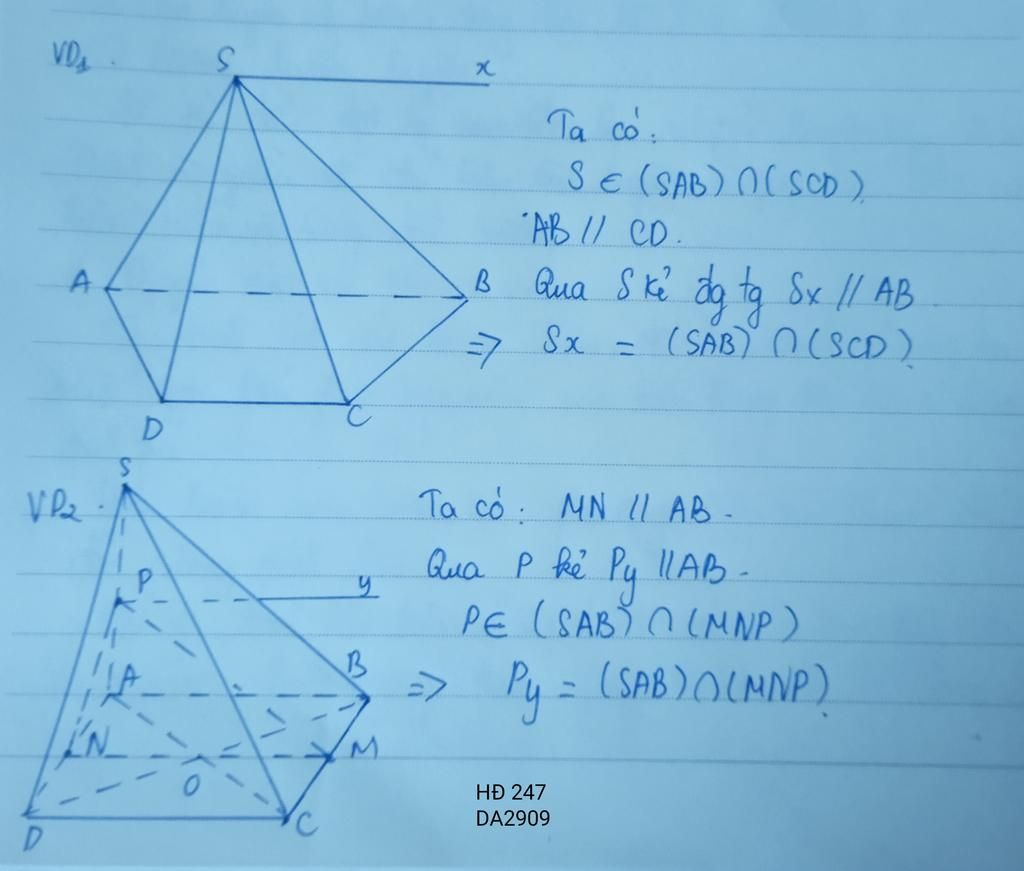 VD1.
S
x
A
B
D
C
Ta có:
S ∈ (SAB) ∩ (SCD).
AB // CD.
Qua S kẻ đg tg Sx // AB
=> Sx = (SAB) ∩ (SCD).
VD2.
S
P
y
A
B
N
M
O
D
C
Ta có: MN // AB.
Qua P kẻ Py // AB.
P ∈ (SAB) ∩ (MNP)
=> Py = (SAB) ∩ (MNP).
HĐ 247
DA2909